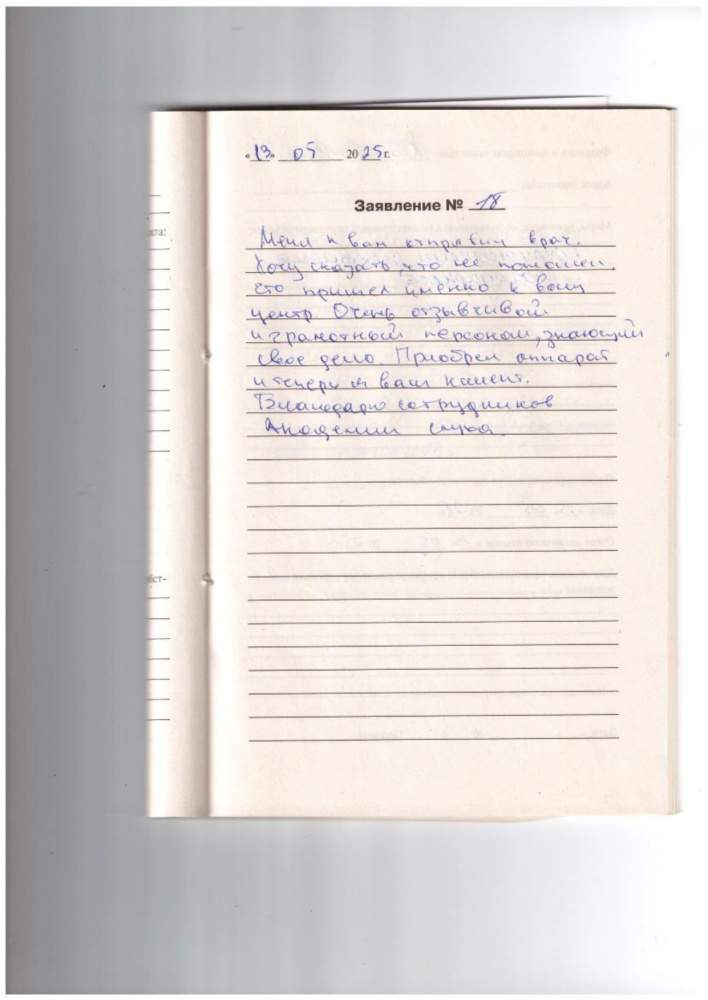 «13» 05 2025 г.
Заявление № 18
Меня к вам отправил врач.
Хочу сказать, что не пожалел
что пришел именно к вам
центр Очень отзывчивой
и грамотный персонал, знающий
свое дело. Приобрел аппарат
и теперь я ваш клиент.
Благодарю сотрудников
Академии слуха.
кта:
йст-